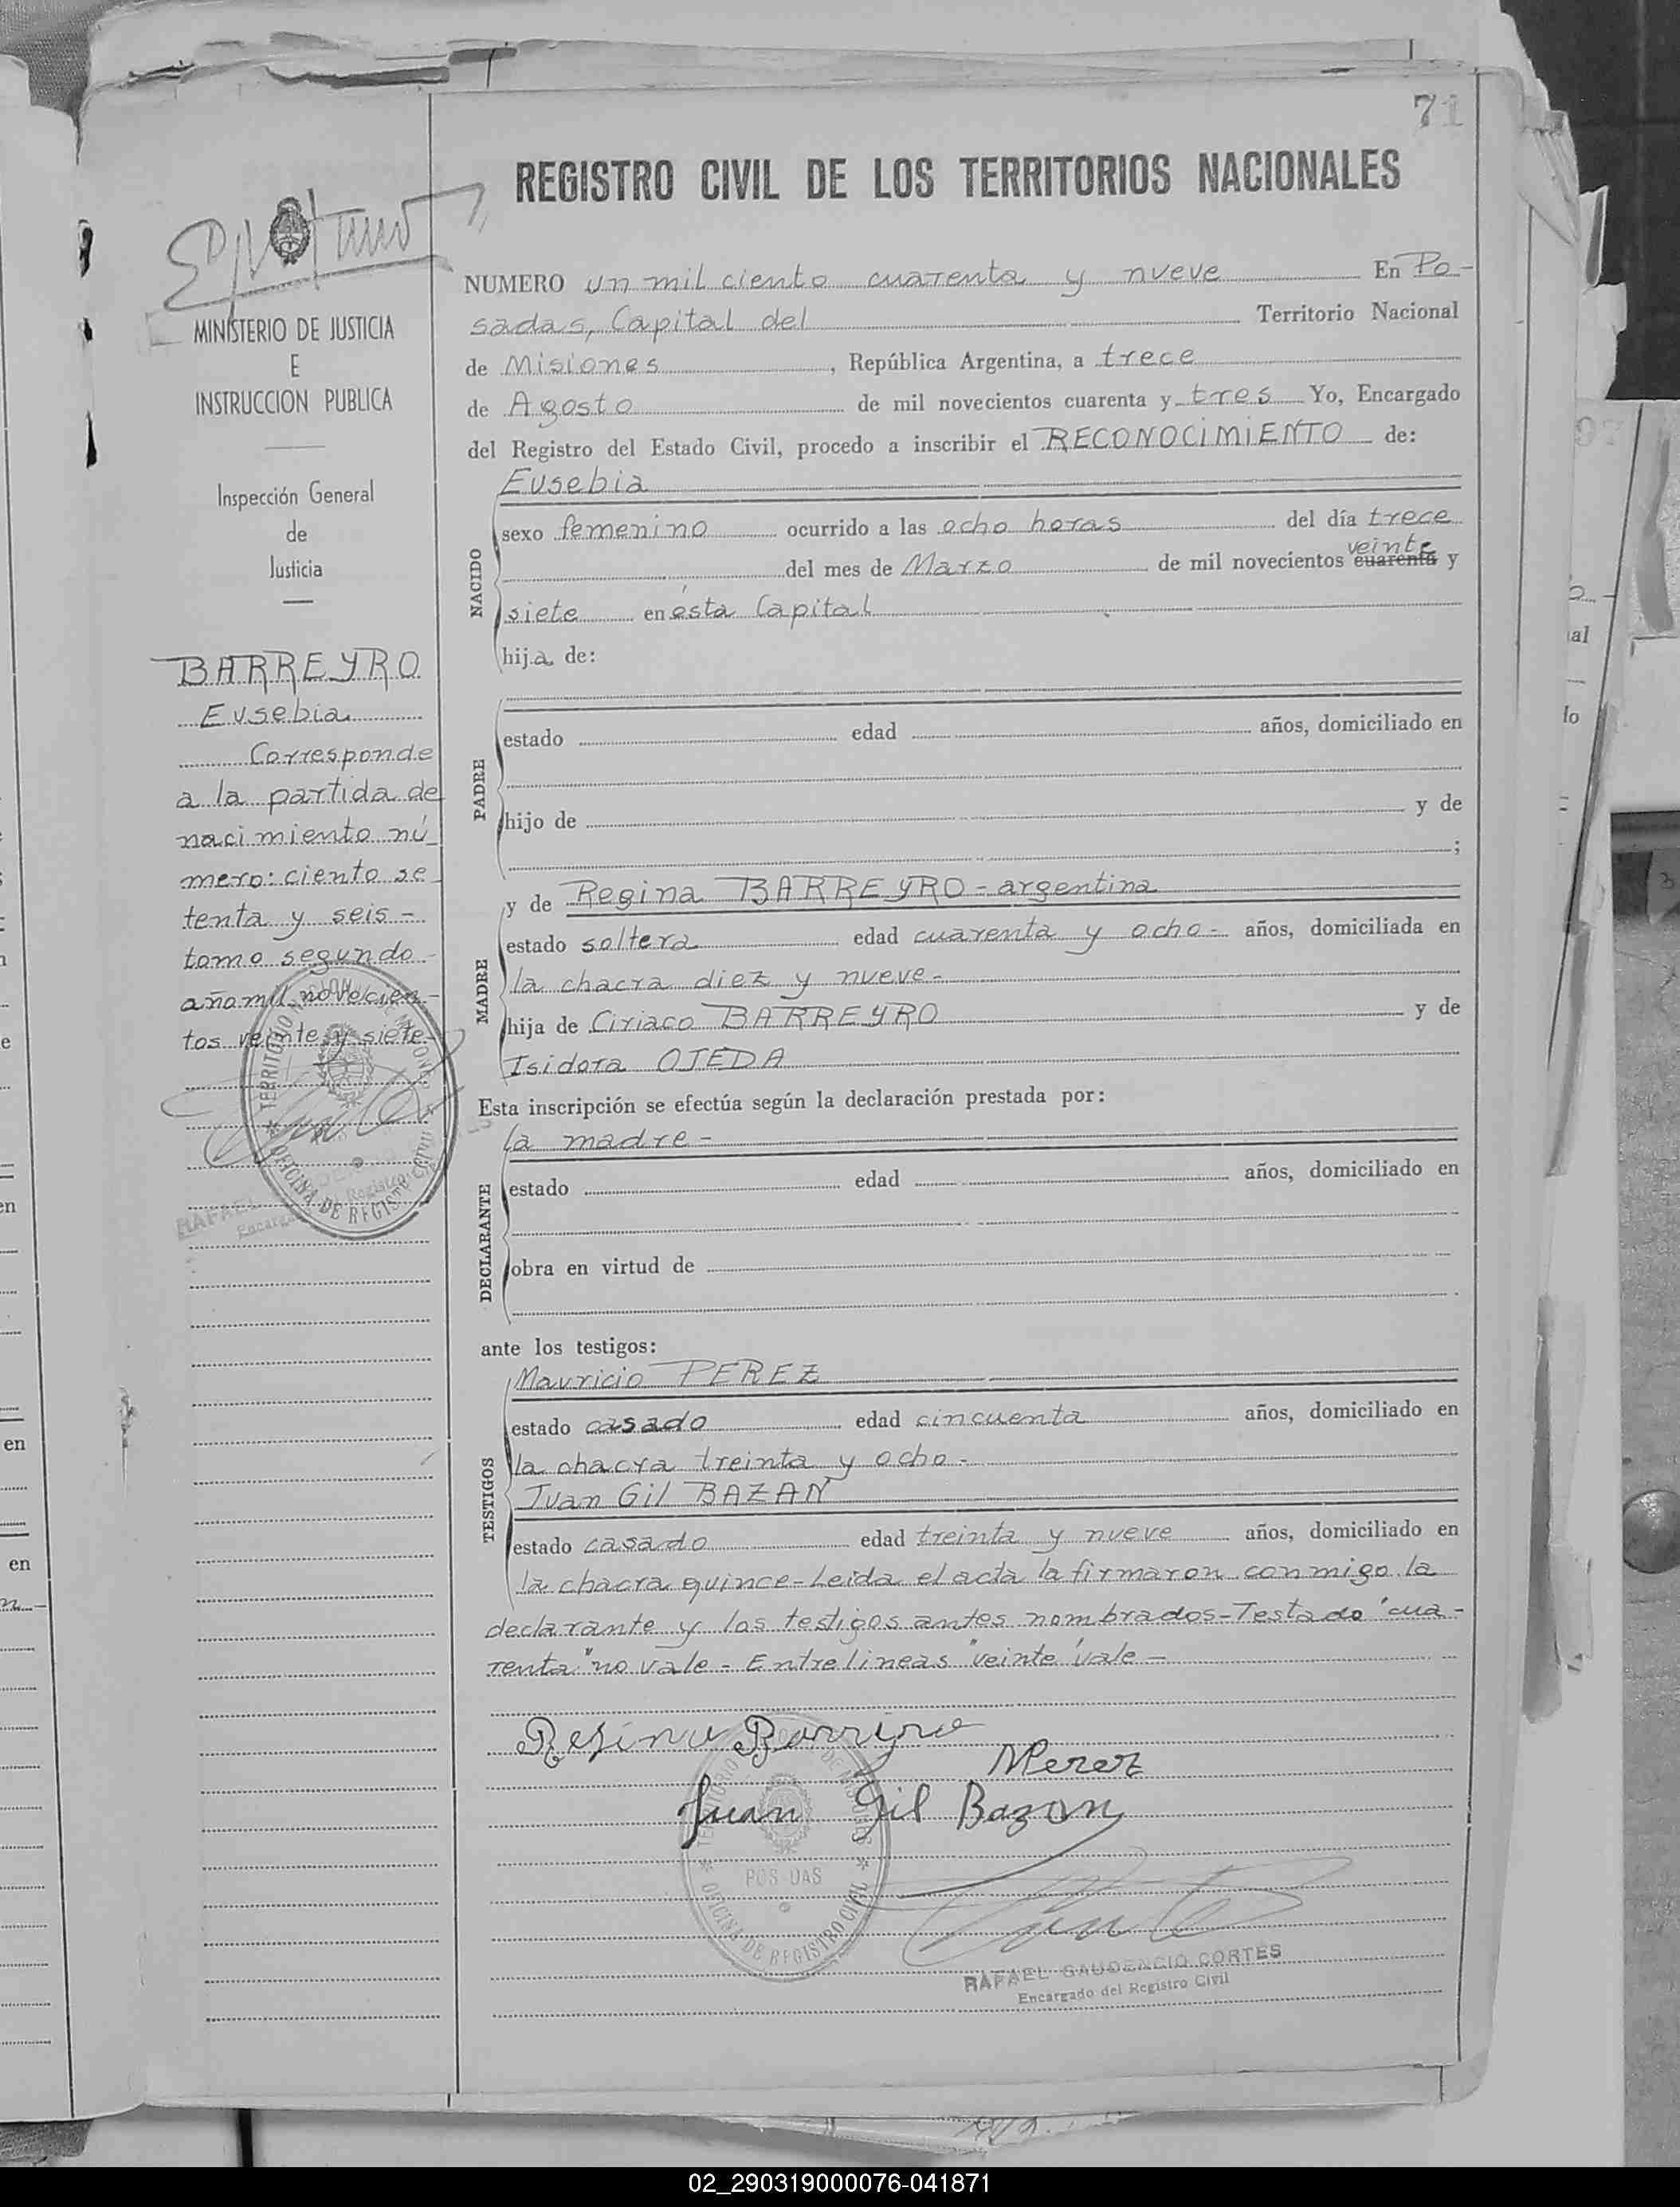 71
REGISTRO CIVIL DE LOS TERRITORIOS NACIONALES
MINISTERIO DE JUSTICIA
E
INSTRUCCION PUBLICA
Inspección General
de
Justicia
BARREYRO
Eusebia
Corresponde
a la partida de
nacimiento nú_
mero: ciento se_
tenta y seis -
tomo segundo -
año mil novecien-
tos veinte y siete-
NUMERO un mil ciento cuarenta y nueve En Po-
sadas, Capital del Territorio Nacional
de Misiones, República Argentina, a trece
de Agosto de mil novecientos cuarenta y tres Yo, Encargado
del Registro del Estado Civil, procedo a inscribir el RECONOCIMIENTO de:
Eusebia
NACIDO
sexo femenino ocurrido a las ocho horas del día trece
veinte
del mes de Marzo de mil novecientos cuarenta y
siete en ésta Capital
hija de:
PADRE
estado edad años, domiciliado en
hijo de y de
;
y de Regina BARREYRO - argentina
MADRE
estado soltera edad cuarenta y ocho - años, domiciliada en
la chacra diez y nueve-
hija de Ciriaco BARREYRO y de
Isidora OJEDA
Esta inscripción se efectúa según la declaración prestada por:
la madre -
DECLARANTE
estado edad años, domiciliado en
obra en virtud de
ante los testigos:
Mauricio PEREZ
TESTIGOS
estado casado edad cincuenta años, domiciliado en
la chacra treinta y ocho -
Juan Gil BAZAN
estado casado edad treinta y nueve años, domiciliado en
la chacra quince - Leida el acta la firmaron conmigo la
declarante y los testigos antes nombrados - Testado "cua-
renta" no vale - Entrelineas "veinte" vale -
Regina Barryro
MPerez
Juan Gil Bazan
TERRITORIO DE MISIONES
POSADAS
OFICINA DE REGISTRO CIVIL
RAFAEL GAUDENCIO CORTES
Encargado del Registro Civil
02_290319000076-041871